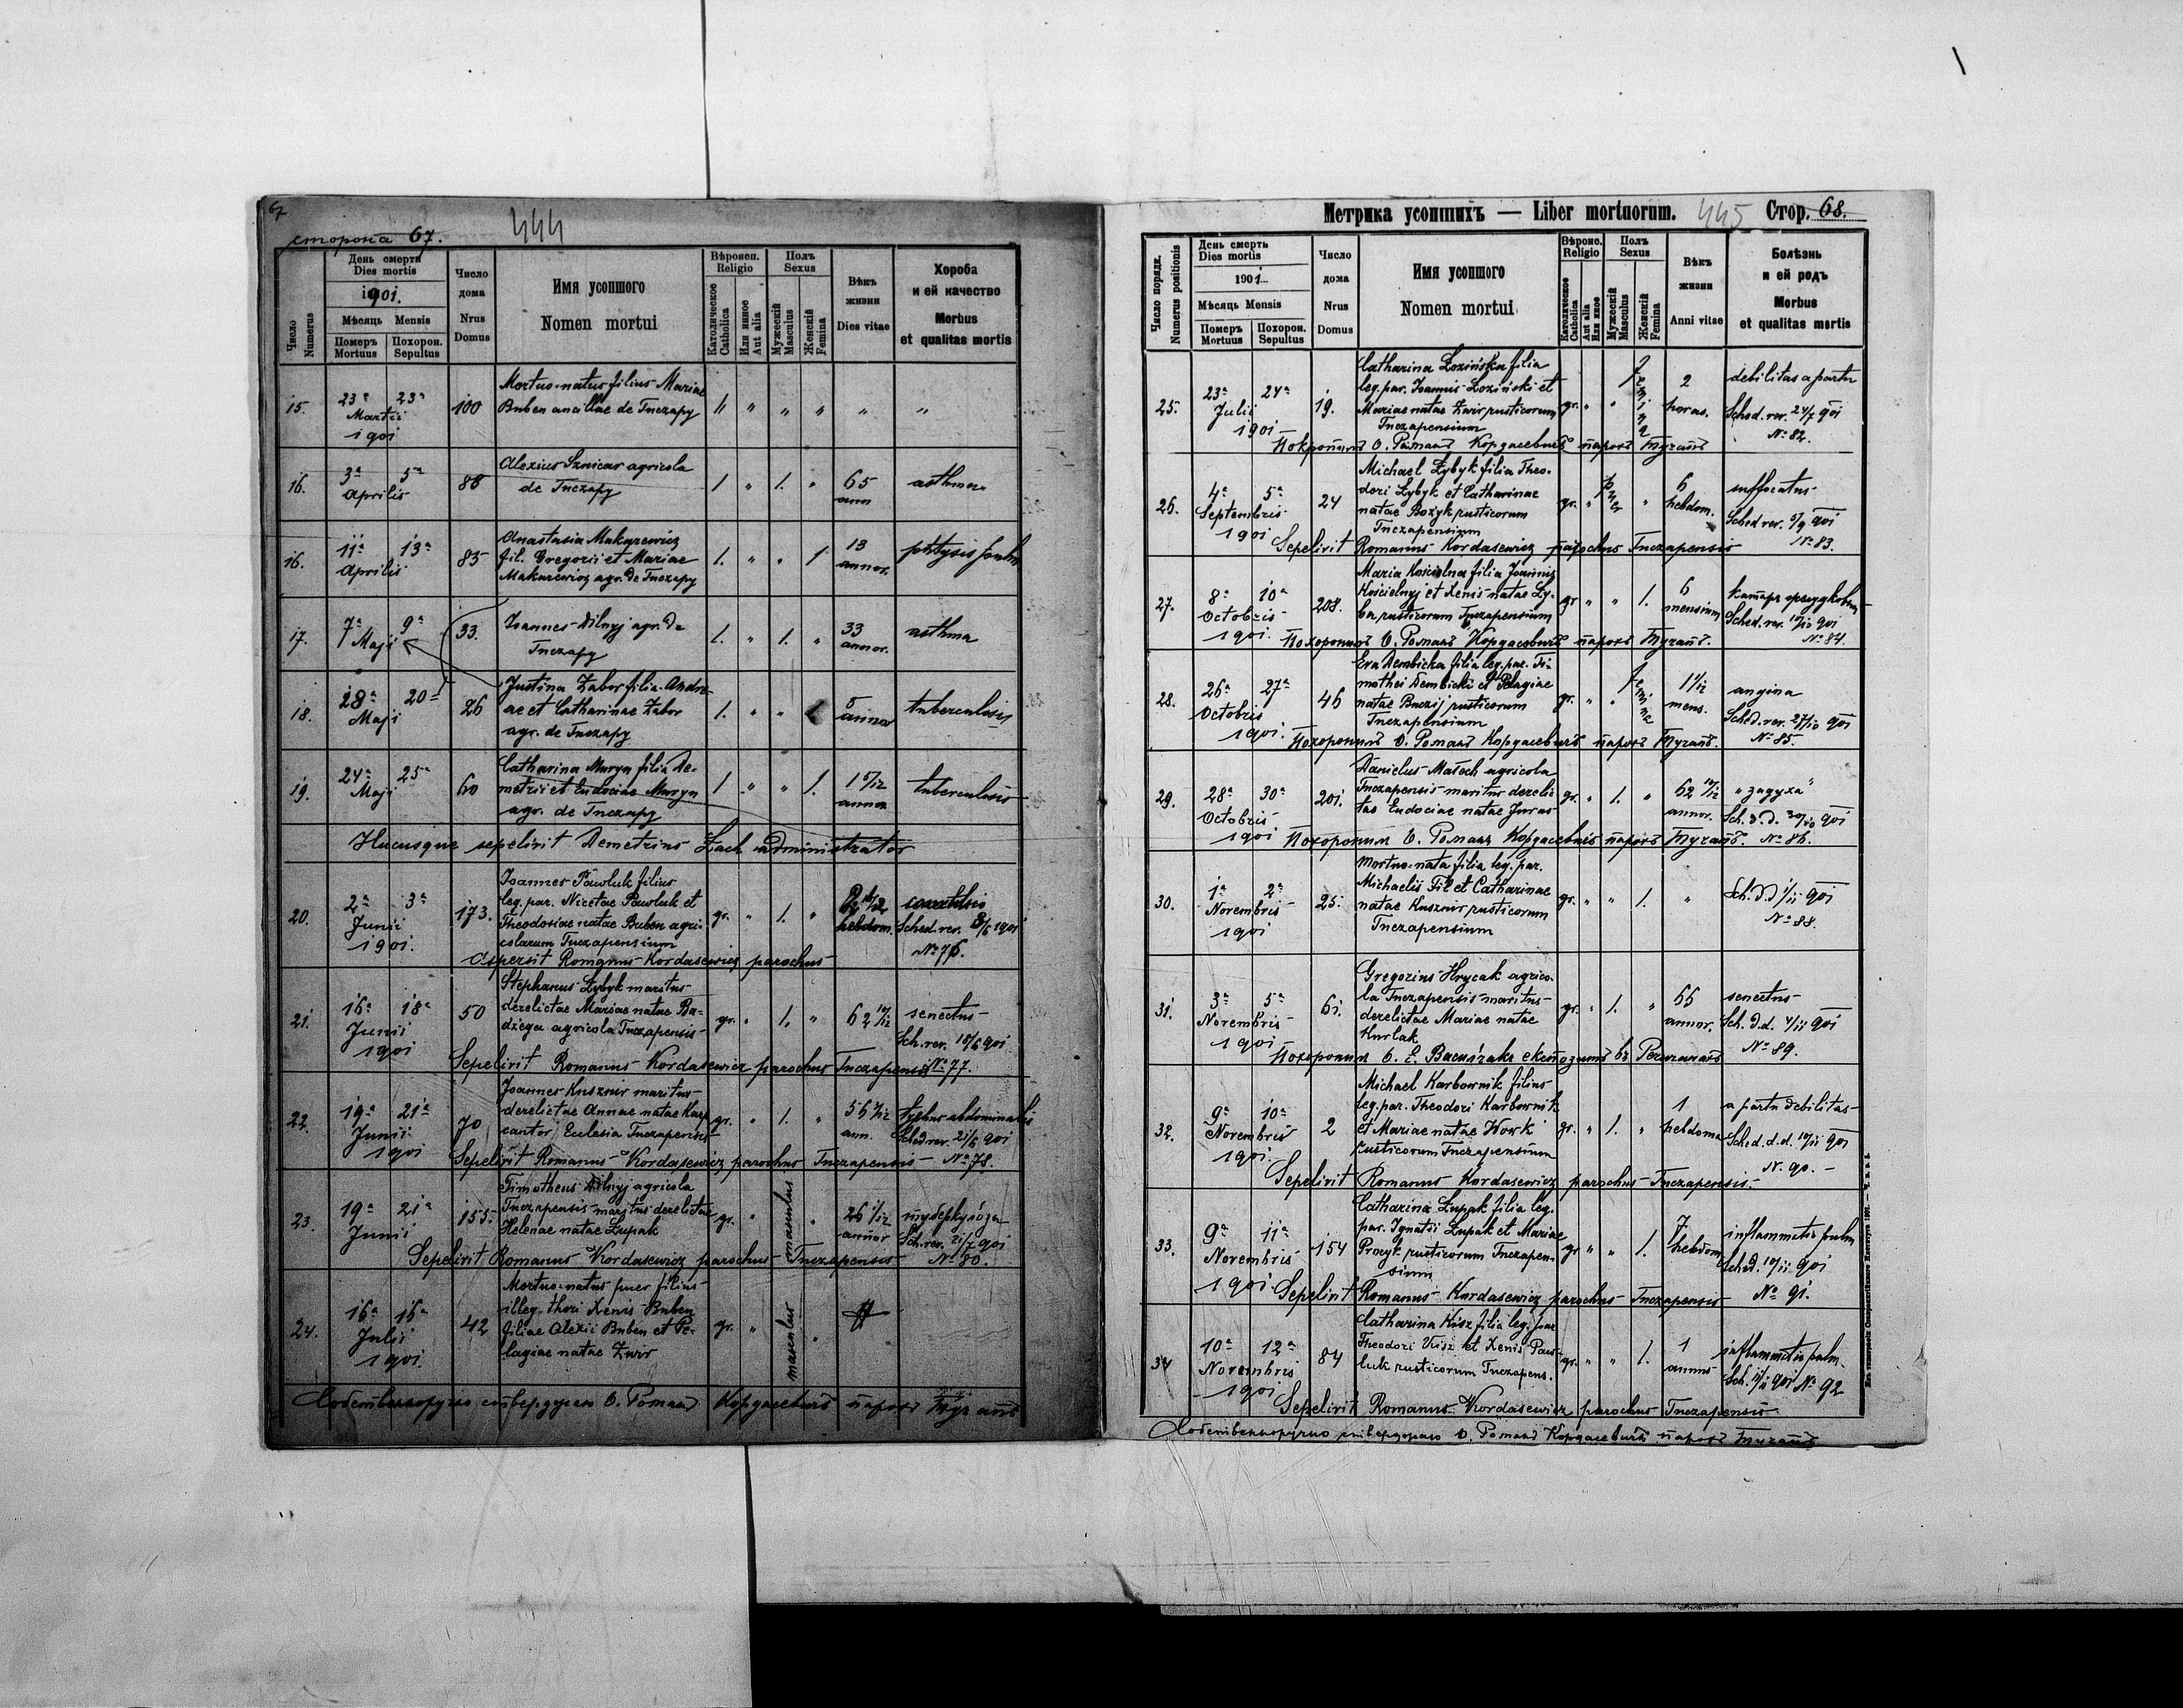 67
сторона 67.
444
Число
Numerus
День смерти
Dies mortis
1901.
Мѣсяць Mensis
Померъ
Mortuus
Похорон.
Sepultus
Число
дома
Nrus
Domus
Имя усопшого
Nomen mortui
Вѣроисп.
Religio
Католическое
Catholica
Или инное
Aut alia
Полъ
Sexus
Мужескій
Masculus
Женскій
Femina
Вѣкъ
жизни
Dies vitae
Хороба
и ей качество
Morbus
et qualitas mortis
15.
23ª 23ª
Martii
1901
100
Mortuo-natus filius Mariae
Buben ancillae de Tuczapy
16.
3ª 5ª
Aprilis
88
Alexius Sznicar agricola
de Tuczapy
1 " 1. "
65
ann
asthma
16.
11ª 13ª
Aprilis
85
Anastasia Makarewicz
fil. Gregorii et Mariae
Makarewicz agr. de Tuczapy
1. " " 1
13
annor.
phtysis
17.
7ª 9ª
Maji
33.
Joannes Dilnyj agr. de
Tuczapy
1. " 1. "
33
annor.
asthma
18.
18ª 20ª
Maji
26
Justina Zabor filia Andre-
ae et Catharinae Zabor
agr. de Tuczapy
1. " "
5
annor
tuberculosis
19.
24ª 25ª
Maji
60
Catharina Muryn filia De-
metrii et Eudociae Muryn
agr. de Tuczapy
1 " " 1.
1 5/12
annor
tuberculosis
Hucusque sepelivit Demetrius Lach administrator
20.
2ª 3ª
Junii
1901.
173.
Joannes Pawluk filius
leg. par. Nicetae Pawluk et
Theodosiae natae Buben agri-
colarum Tuczapensium
gr. " 1. "
hebdom.
Sched. rev. 3/6 1901
Nº 76.
Aspersit Romanus Kordasewicz parochus
21.
16ª 18ª
Junii
1901
50
Stephanus Zybyk maritus
derelictae Mariae natae Ba-
dzega agricola Tuczapensis
gr. " 1. "
62 10/12
senectus
Sch. rev. 18/6 901
Nº 77.
Sepelivit Romanus Kordasewicz parochus Tuczapensis
22.
19ª 21ª
Junii
1901
70
Joannes Kusznir maritus
derelictae Annae natae
cantor Ecclesia Tuczapensis
gr. " 1. "
56
ann.
typhus abdominalis
Sched. rev. 21/6 901
Sepelivit Romanus Kordasewicz parochus Tuczapensis Nº 78.
23.
19ª 21ª
Junii
155.
Timotheus Dilnyj agricola
Tuczapensis maritus derelictae
Helenae natae Zupak
gr. " masculus "
26 1/12
annor
туберкулоза
Sch. rev. 21/7 901
Sepelivit Romanus Kordasewicz parochus Tuczapensis Nº 80.
24.
16ª 16ª
Julii
1901.
42
Mortuo-natus puer filius
illeg. thori Xenis Buben
filiae Alexii Buben et Pe-
lagiae natae Zwir
gr. " masculus "
Собственноручно ствердураю О. Романъ Кордасевичъ парохъ Тучапъ
Метрика усопшихъ — Liber mortuorum.
445
Стор. 68.
Число порядк.
Numerus positionis
День смерть
Dies mortis
1901...
Мѣсяць Mensis
Померъ
Mortuus
Похорон.
Sepultus
Число
дома
Nrus
Domus
Имя усопшого
Nomen mortui
Вѣроис.
Religio
Католическое
Catholica
Aut alia
Или иное
Полъ
Sexus
Мужескій
Masculus
Женскій
Femina
Вѣкъ
жизни
Anni vitae
Болѣзнь
и ей родъ
Morbus
et qualitas mortis
25.
23ª 24ª
Julii
1901
19.
Catharina Łozińska filia
leg. par. Joannis Łoziński et
Mariae natae Zwir rusticorum
Tuczapensium
gr. " " femina
2
horas.
debilitas a partu
Sched. rev. 24/7 901
Nº 82.
Покропилъ О. Романъ Кордасевичъ парохъ Тучапъ
26.
4ª 5ª
Septembris
1901
24
Michael Zybyk filia Theo-
dori Zybyk et Catharinae
natae Bożyk rusticorum
Tuczapensium
gr. " puer "
6
hebdom.
suffocatus
Sched. rev. 5/9 901
Nº 83.
Sepelivit Romanus Kordasewicz parochus Tuczapensis
27.
8ª 10ª
Octobris
1901.
208.
Maria Kościelna filia Joannis
Kościelnyj et Xenis natae Zy-
ba rusticorum Tuczapensium
gr " " 1.
6
mensium
Sched. rev. 10/10 901
Nº 84.
Похоронилъ О. Романъ Кордасевичъ парохъ Тучапъ.
28.
26ª 27ª
Octobris
1901.
46
Eva Dembicka filia leg. par. Ti-
mothei Dembicki et Pelagiae
natae Buczij rusticorum
Tuczapensium
gr. " " femina
1 1/12
mens.
angina
Sched. rev. 27/10 901
Nº 85.
Похоронилъ О. Романъ Кордасевичъ парохъ Тучапъ.
29.
28ª 30ª
Octobris
1901
201.
Danielus Małoch agricola
Tuczapensis maritus derelic-
tae Eudociae natae Juras
gr. " 1. "
62 10/12
annor.
"задуха"
Sch. d. d. 30/10 901
Похоронилъ О. Романъ Кордасевичъ парохъ Тучапъ. Nº 86.
30.
1ª 2ª
Novembris
1901
25.
Mortuo-nata filia leg. par.
Michaelis Fil et Catharinae
natae Kusznir rusticorum
Tuczapensium
gr. " " 1.
"
Sch. d. d. 1/11 901
Nº 88.
31.
3ª 5ª
Novembris
1901
61.
Gregorius Hrycak agrico-
la Tuczapensis maritus
derelictae Mariae natae
Hurlak
gr. " 1. "
66
annor.
senectus
Sch. d. d. 4/11 901
Nº 89.
32.
9ª 10ª
Novembris
1901.
2
Michael Karbownik filius
leg. par. Theodori Karbownik
et Mariae natae Wowk
rusticorum Tuczapensium
gr. " 1. "
1
hebdoma
a partu debilitas
Sched. d. d. 10/11 901
N. 90.
Sepelivit Romanus Kordasewicz parochus Tuczapensis.
33.
9ª 11ª
Novembris
1901
154
Catharina Zupak filia leg.
par. Ignatii Zupak et Mariae
Procyk rusticorum Tuczapen-
sium
gr " " 1.
7
hebdom
inflammatio pulm
Sched. 10/11 901
Nº 91.
Sepelivit Romanus Kordasewicz parochus Tuczapensis
34
10ª 12ª
Novembris
1901
84
Catharina Kisz filia leg. par
Theodori Kisz et Xenis Paw-
luk rusticorum Tuczapens.
gr. " " 1.
1
annus
inflammatio pulm.
Sch. 11/11 901 Nº 92
Sepelivit Romanus Kordasewicz parochus Tuczapensis
Собственноручно ствердураю О. Романъ Кордасевичъ парохъ Тучапъ